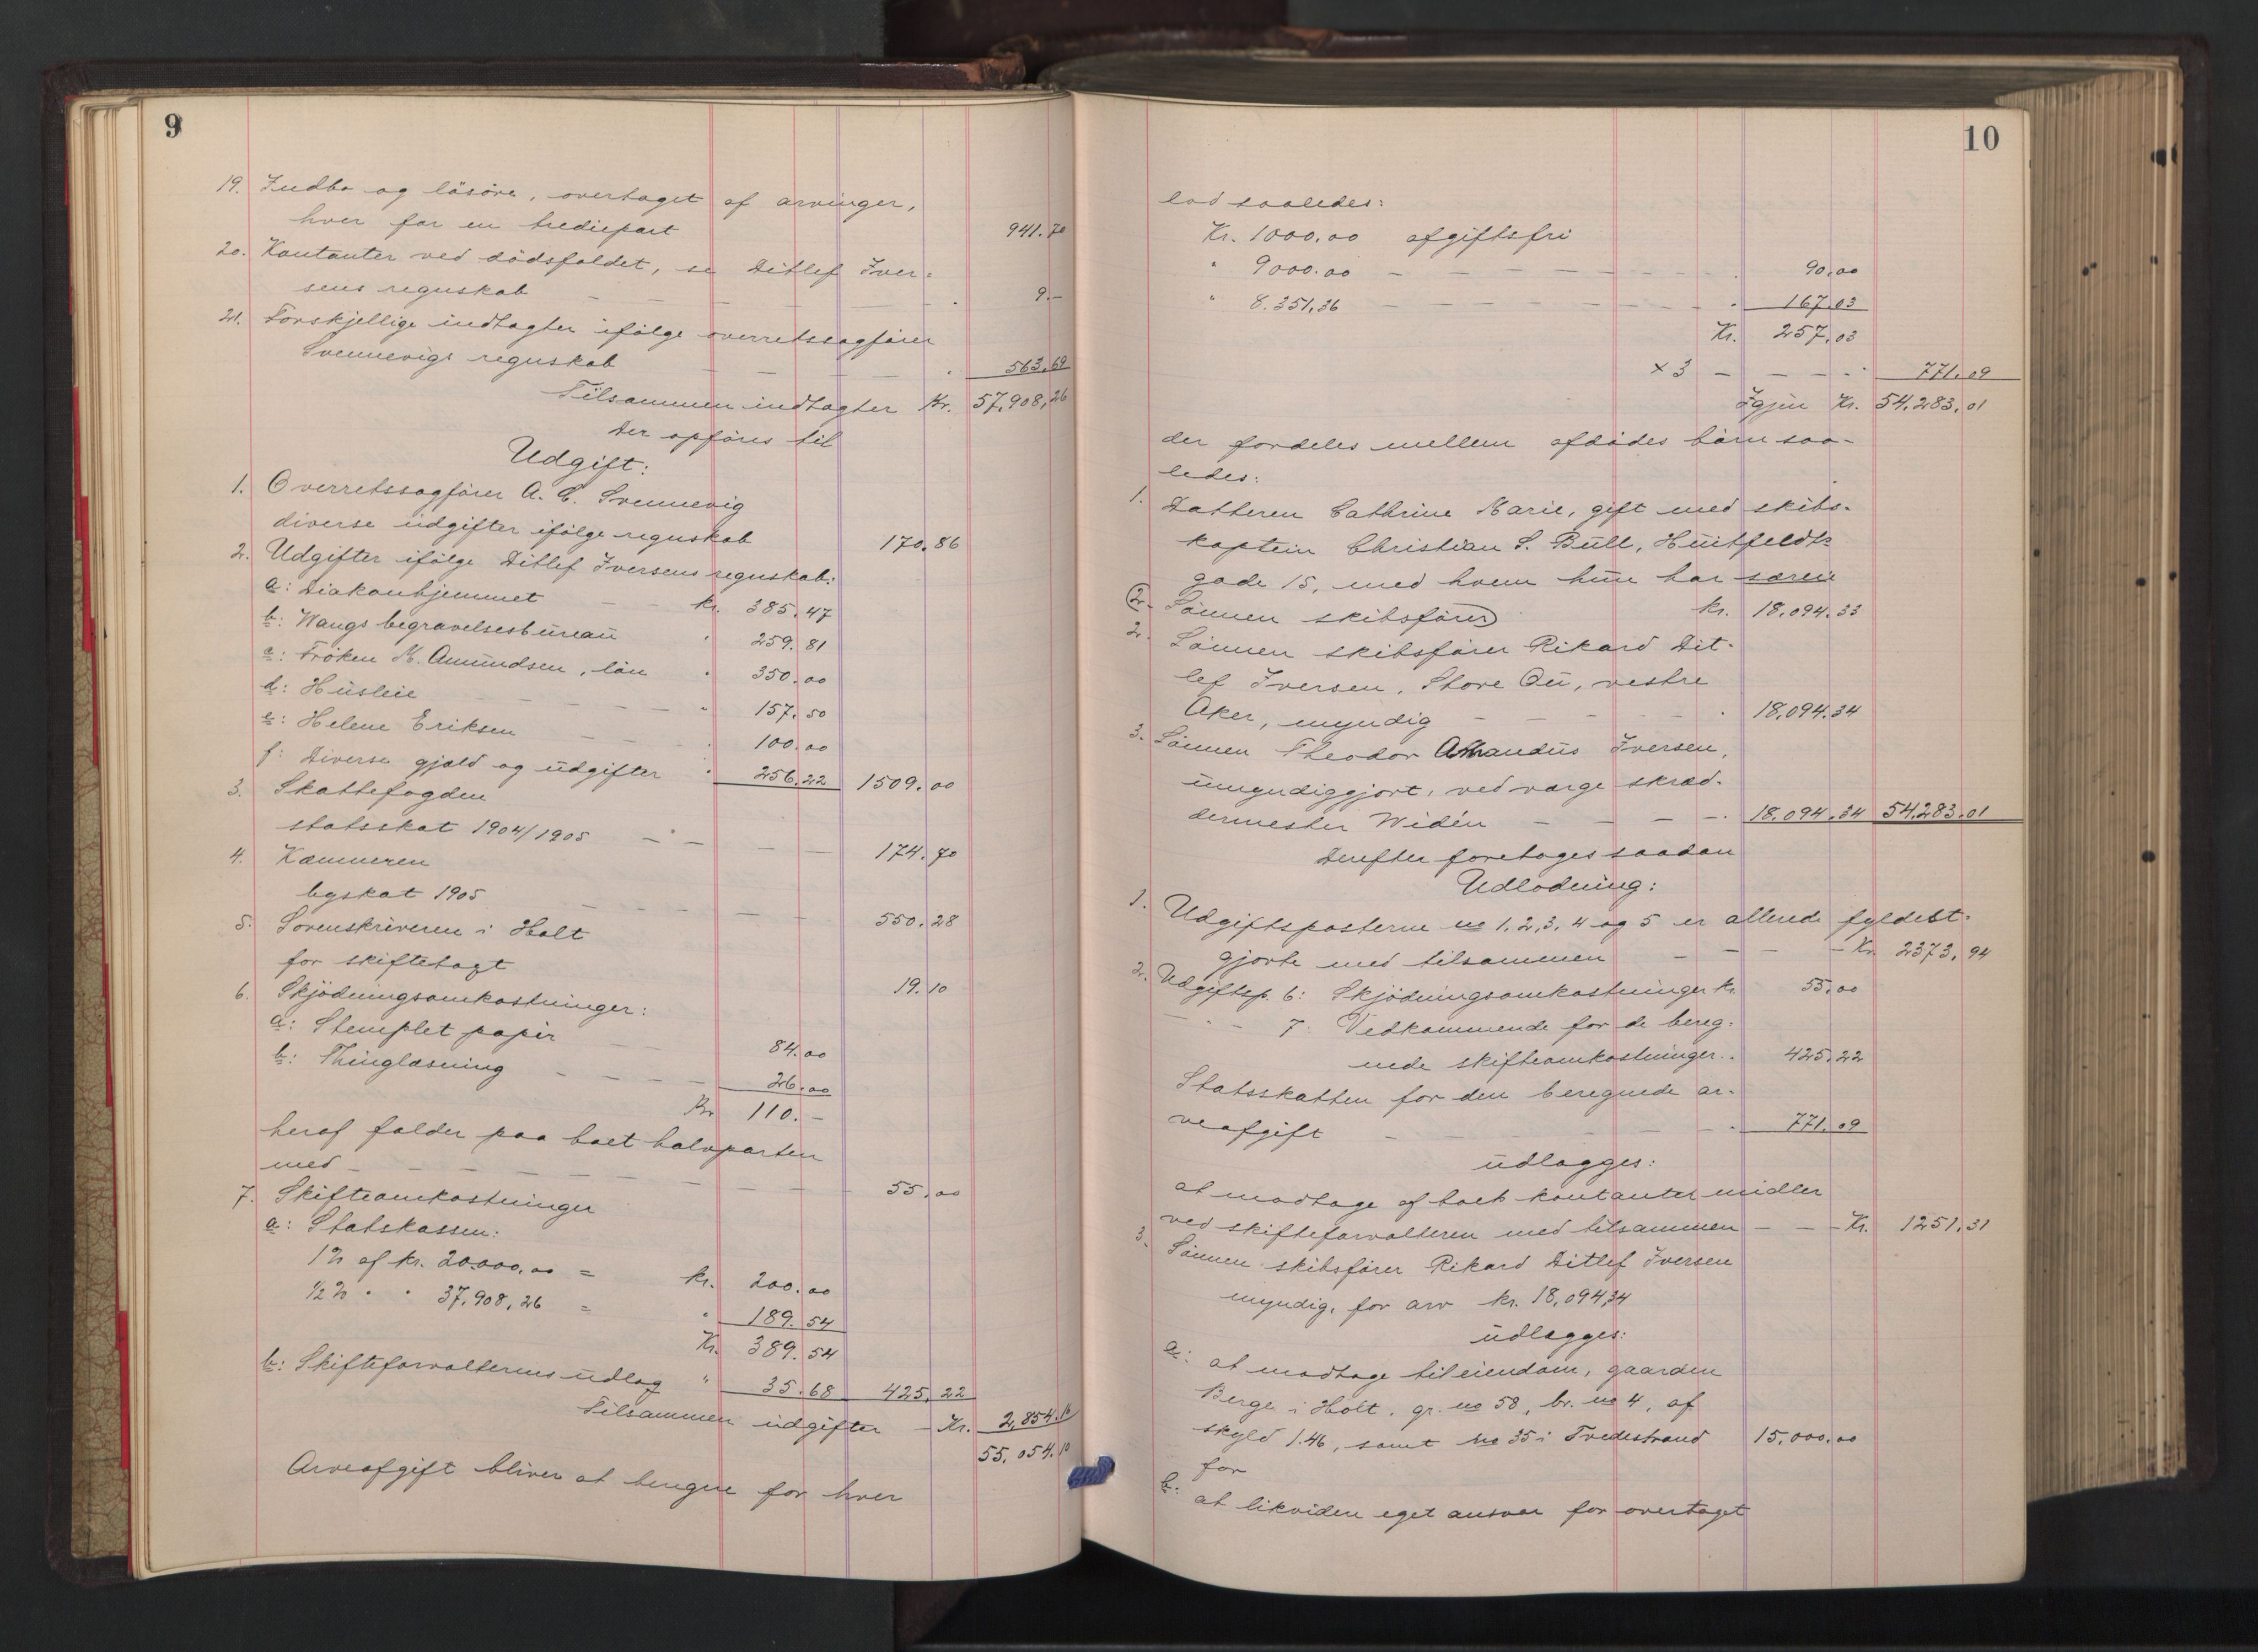 9
19. Indbo og lösöre, overtaget af arvinger,
hver for en trediepart 941.70
20. Kontanter ved dödsfaldet, se Ditlef Iver-
sens regnskab — — — — — " 9.—
21. Forskjellige indtægter ifölge overretssagförer
Svennevigs regnskab — — — " 563.69
Tilsammen indtægter Kr. 57,908,26
Der opföres til
Udgift:
1. Overretssagförer A. C. Svennevig
diverse udgifter ifölge regnskab 170.86
2. Udgifter ifölge Ditlef Iversens regnskab:
a: Diakonhjemmet — kr. 385.47
b: Wangs begravelsesbureau " 259.81
c: Fröken M. Amundsen, lön " 350.00
d: Husleie — — — — " 157.50
e: Helene Eriksen — — " 100.00
f: Diverse gjæld og udgifter " 256.22 1509.00
3. Skattefogden
statsskat 1904/1905 — — — —
174.70
4. Kæmneren
byskat 1905 — — — —
550.28
5. Sorenskriveren i Holt
for skiftetagt
19.10
6. Skjödningsomkostninger:
a: Stemplet papir — — 84.00
b: Thinglæsning — — — — 26.00
Kr 110.—
heraf falder paa boet halvparten
med — — — — — — — 55.00
7. Skifteomkostninger
a: Statskassen:
1 % af kr. 20.000.00 = kr. 200.00
½ % " " 37,908,26 = " 189.54
Kr. 389.54
b: Skifteforvalterens udlæg " 35.68 425.22
Tilsammen udgifter — Kr. 2,854.16
55,054.10
Arveafgift bliver at beregne for hver
10
lod saaledes:
Kr. 1000.00 afgiftsfri
" 9000.00 — — — — — — — " 90,00
" 8.351,36 — — — — — — — " 167.03
Kr. 257,03
× 3 — — — — " 771.09
Igjen Kr. 54.283,01
der fordeles mellem afdödes börn saa-
ledes:
1. Datteren Cathrine Marie, gift med skibs-
kaptein Christian S. Bull, Huitfeldts-
gade 15, med hvem hun har særeie
kr. 18,094.33
(2. Sönnen skibsförer)
2. Sönnen skibsförer Rikard Dit-
lef Iversen, Store Ou, vestre
Aker, myndig — — — — — " 18,094.34
3. Sönnen Theodor Amandus Iversen,
umyndiggjort, ved værge skræd-
dermester Widén — — — — " 18.094.34 54,283.01
Derefter foretages saadan
Udlodning:
1. Udgiftsposterne no 1, 2, 3, 4 og 5 er allerede fyldest-
gjorte med tilsammen — — — Kr. 2373,94
2. Udgiftsp. 6: Skjödningsomkostninger kr. 55,00
— " — 7: Vedkommende for de bereg-
nede skifteomkostninger " 425,22
Statsskatten for den beregnede ar-
veafgift — — — — — — — " 771.09
udlægges:
at modtage af boets kontanter midler
ved skifteforvalteren med tilsammen — — — Kr. 1251,31
3. Sönnen skibsförer Rikard Ditlef Iversen
myndig, for arv kr. 18,094,34
udlægges:
a: at modtage til eiendom, gaarden
Berge i Holt, gr. no 58, br. no 4, af
skyld 1.46, samt no 35 i Tvedestrand
for 15,000.00
b: at likvidere eget ansvar for overtaget